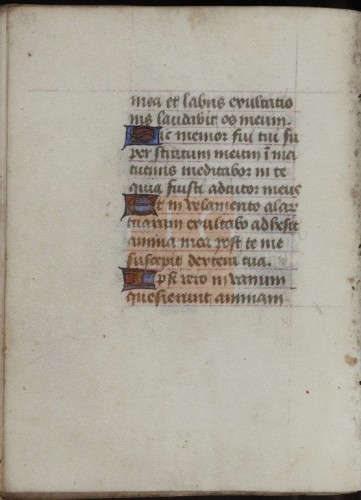 mea et labiis exultatio
nis laudabit os meum.
Sic memor fui tui su
per stratum meum i ma
tutinis meditabor in te
quia fuisti adiutor meus
Et in velamento alar
tuarum exultabo adhesit
anima mea post te me
suscepit dextera tua.
Ipsi vero in vanum
quesierunt animam